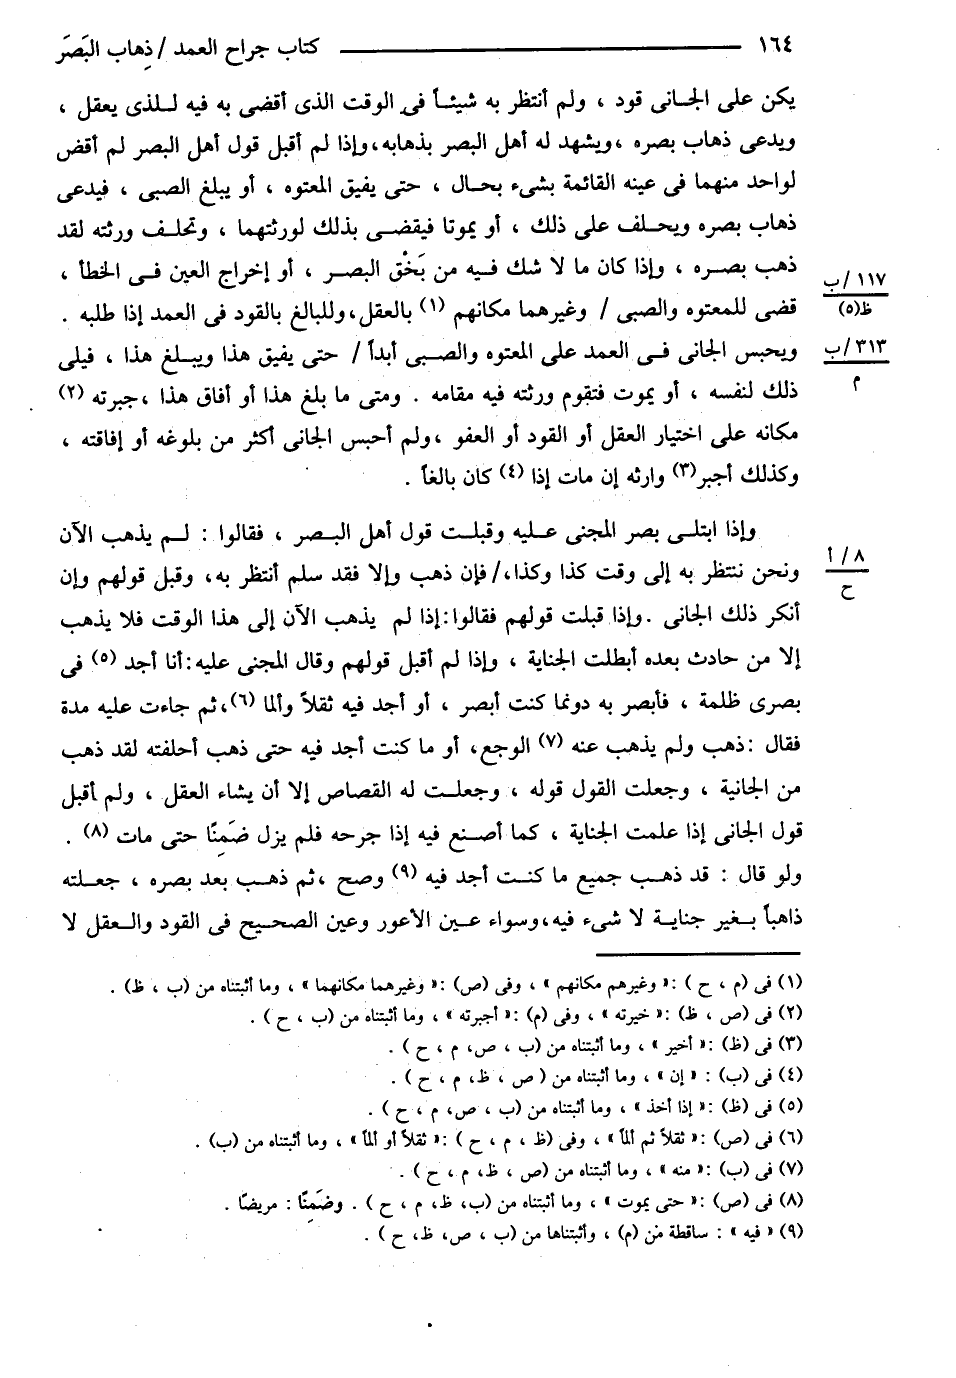 ١٦٤ ــــــــــــ كتاب جراح العمد / ذهاب البَصَرِ
يكن على الجـانى قود ، ولم أنتظر به شيئـاً فى الوقت الذى أقضى به فيه لـلذى يعقل ،
ويدعى ذهاب بصره ،ويشهد له أهل البصر بذهابه،وإذا لم أقبل قول أهل البصر لم أقض
لواحد منهما فى عينه القائمة بشىء بحـال ، حتى يفيق المعتوه ، أو يبلغ الصبى ، فيدعى
ذهاب بصره ويحـلف على ذلك ، أو يموتا فيقضـى بذلك لورثتهما ، وتحلـف ورثته لقد
ذهب بصـره ، وإذا كان ما لا شك فـيه من بَخْق البصـر ، أو إخراج العين فـى الخطأ ،
١١٧/ب
قضى للمعتوه والصبى / وغيرهما مكانهم (١) بالعقل،وللبالغ بالقود فى العمد إذا طلبه .
ظ(٥)
ويحبس الجانى فـى العمد على المعتوه والصـبى أبداً / حتى يفيق هذا ويبـلغ هذا ، فيلى
٣١٣/ب
م
ذلك لنفسه ، أو يموت فتقوم ورثته فيه مقامه . ومتى ما بلغ هذا أو أفاق هذا ،جبرته (٢)
مكانه على اختيار العقل أو القود أو العفو ،ولم أحبس الجانى أكثر من بلوغه أو إفاقته ،
وكذلك أجبر(٣) وارثه إن مات إذا (٤) كان بالغاً .
وإذا ابتلـى بصر المجنى عـليه وقبلـت قول أهل البـصر ، فقالوا : لـم يذهب الآن
٨ / أ
ونحن ننتظر به إلى وقت كذا وكذا،/ فإن ذهب وإلا فقد سلم أنتظر به، وقبل قولهم وإن
ح
أنكر ذلك الجانى .وإذا قبلت قولهم فقالوا:إذا لم يذهب الآن إلى هذا الوقت فلا يذهب
إلا من حادث بعده أبطلت الجناية ، وإذا لم أقبل قولهم وقال المجنى عليه:أنا أجد (٥) فى
بصرى ظلمة ، فأبصر به دونما كنت أبصر ، أو أجد فيه ثقلاً وألما (٦)،ثم جاءت عليه مدة
فقال :ذهب ولم يذهب عنه (٧) الوجع، أو ما كنت أجد فيه حتى ذهب أحلفته لقد ذهب
من الجانية ، وجعلت القول قوله ، وجعلـت له القصاص إلا أن يشاء العقل ، ولم أقبل
قول الجانى إذا علمت الجناية ، كما أصـنع فيه إذا جرحه فلم يزل ضَمِنًا حتى مات (٨) .
ولو قال : قد ذهـب جميع ما كنـت أجد فيه (٩) وصح ،ثم ذهـب بعد بصره ، جعـلته
ذاهباً بـغير جنايـة لا شىء فيه،وسواء عـين الأعور وعين الصحـيح فى القود والـعقل لا
(١) فى (م ، ح ) :« وغيرهم مكانهم » ، وفى (ص) :« وغيرهما مكانهما » ، وما أثبتناه من (ب ، ظ) .
(٢) فى (ص ، ظ): « خيرته » ، وفى (م) :« أجبرته » ، وما أثبتناه من (ب ، ح ) .
(٣) فى (ظ) :« أخير » ، وما أثبتناه من (ب ، ص، م ، ح ) .
(٤) فى (ب) : « إن » ، وما أثبتناه من ( ص ، ظ، م ، ح ) .
(٥) فى (ظ) :« إذا أخذ » ، وما أثبتناه من (ب ، ص، م ، ح ) .
(٦) فى (ص) :« ثقلاً ثم ألماً » ، وفى (ظ ، م ، ح ) :« ثقلاً أو ألماً » ، وما أثبتناه من (ب) .
(٧) فى (ب) :« منه » ، وما أثبتناه من (ص ، ظ، م ، ح ) .
(٨) فى (ص) :« حتى يموت » ، وما أثبتناه من (ب، ظ، م ، ح ) . وضَمِنًا : مريضًا .
(٩) « فيه » : ساقطة من (م) ، وأثبتناها من (ب ، ص، ظ، ح ) .